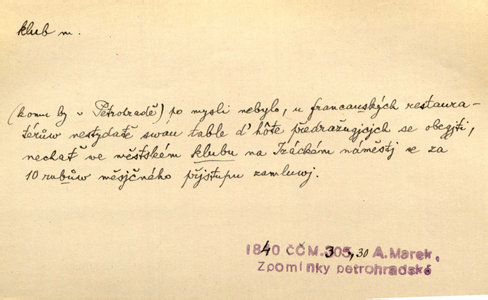 klub m.
(komu by v Petrohradě) po mysli nebylo, u francauských restaura-
térůw nestydatě swau table d'hôte předražugjcjch se obcgjti,
nechať we městském klubu na Izáckám náměstj se za
10 rubůw měsjčného přjstupu zamluwj.
1840 ČČM. 305, 30 A. Marek,
Zpomínky petrohradské